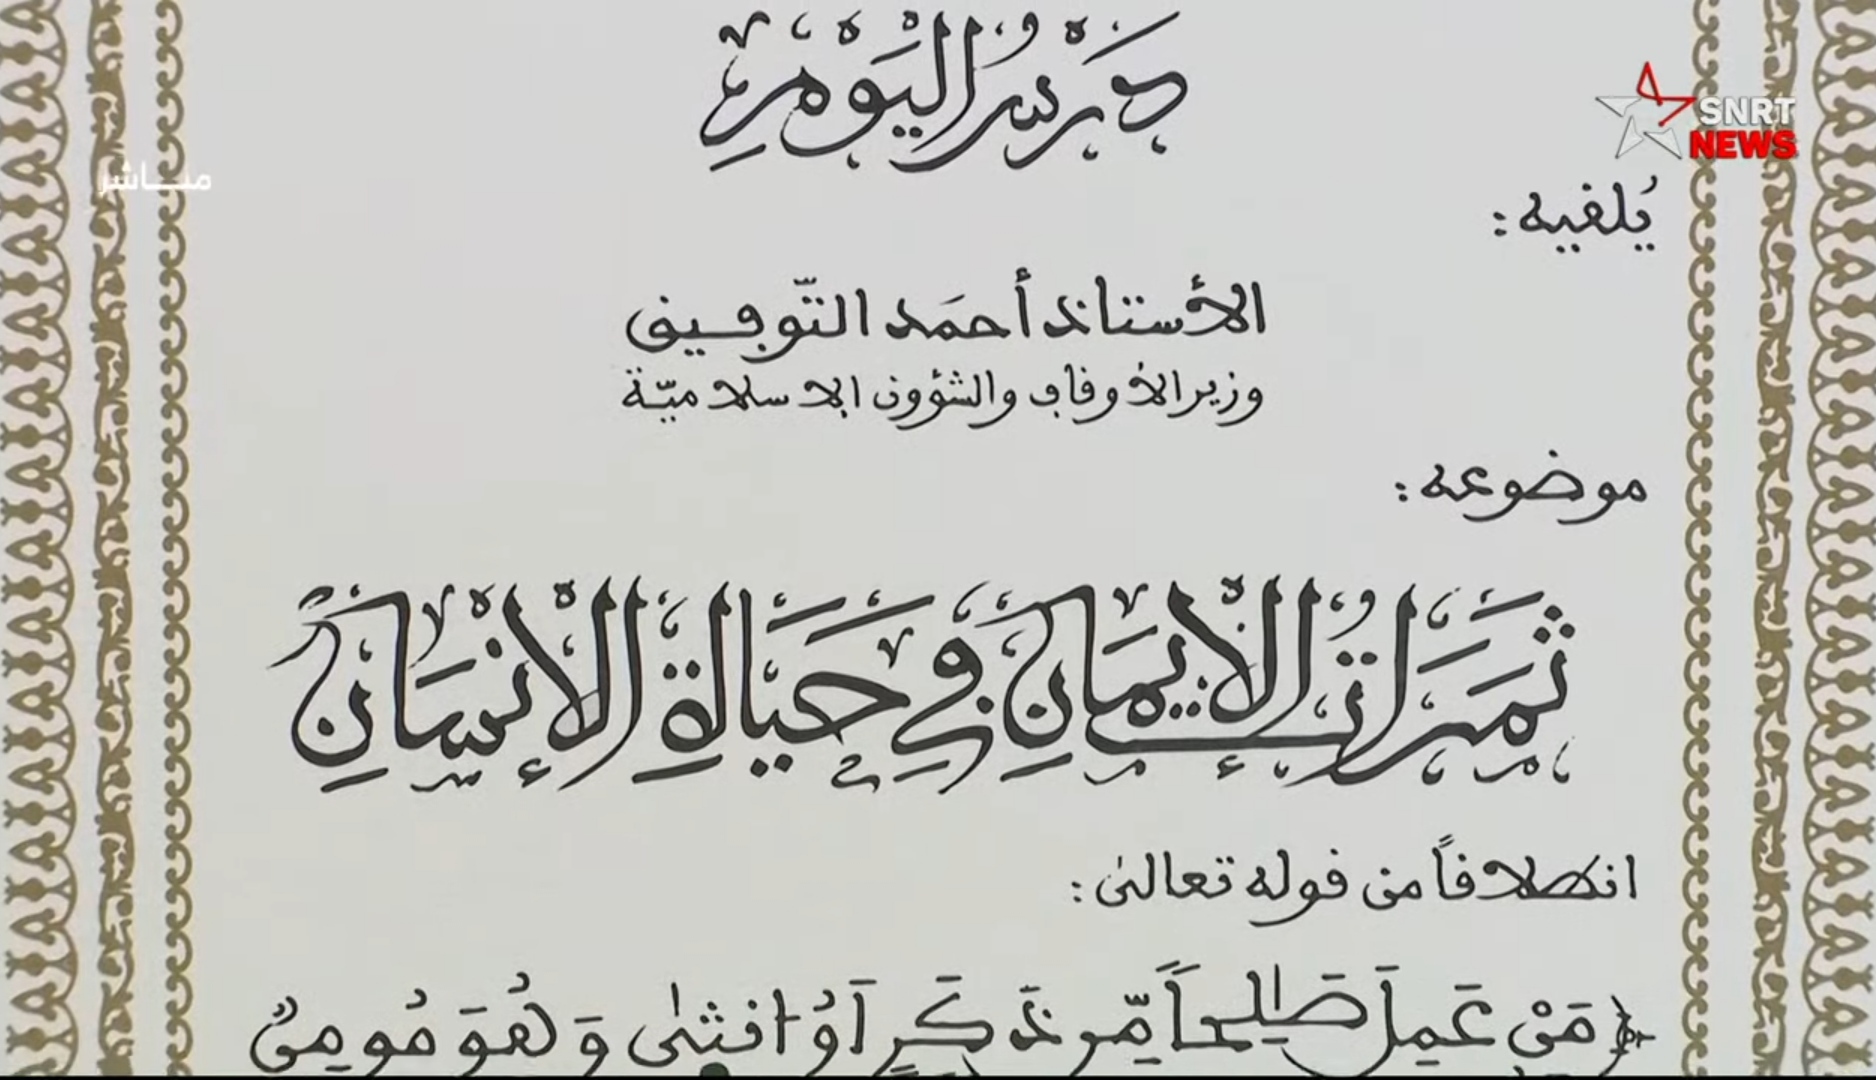 درس اليوم
SNRT
NEWS
مباشر
يُلقيه:
الأستاذ أحمد التّوفيق
وزير الأوقاف والشؤون الإسلاميّة
موضوعه:
ثَمَرَاتُ الْإِيمَانِ فِي حَيَاةِ الْإِنْسَانِ
انطلاقاً من قوله تعالى:
﴿مَنْ عَمِلَ صَٰلِحاً مِّن ذَكَرٍ اَوُ انثىٰ وَهُوَ مُومِنٌ